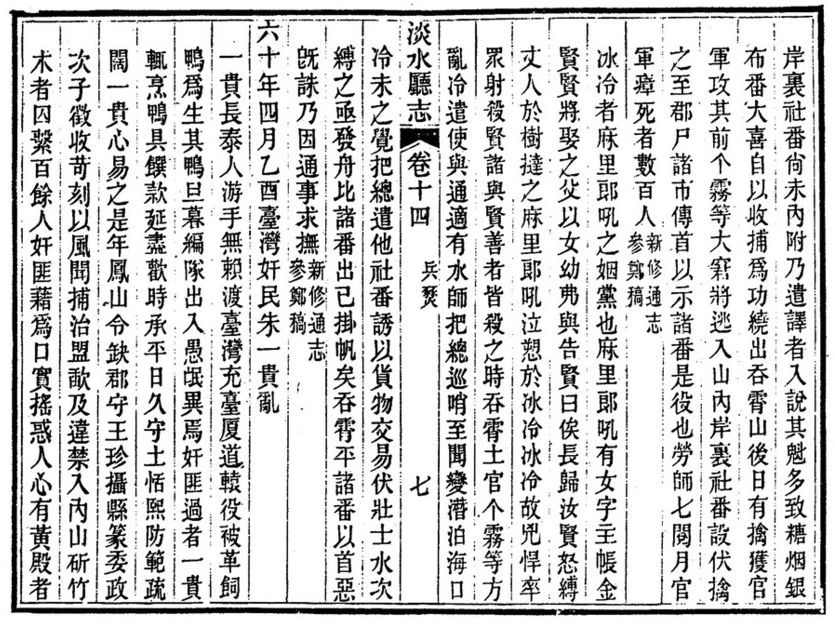 岸裏社番尙未內附乃遣譯者入說其魁多致糖烟銀
布番大喜自以收捕爲功繞出吞霄山後日有擒獲官
軍攻其前个霧等大窘將逃入山內岸裏社番設伏擒
之至郡尸諸市傳首以示諸番是役也勞師七閱月官
軍瘴死者數百人新修通志
參鄭稿
冰冷者麻里郎吼之姻黨也麻里郎吼有女字主帳金
賢賢將娶之父以女幼弗與告賢曰俟長歸汝賢怒縛
丈人於樹撻之麻里郎吼泣愬於冰冷冰冷故兇悍率
眾射殺賢諸與賢善者皆殺之時吞霄土官个霧等方
亂冷遣使與通適有水師把總巡哨至聞變潛泊海口
淡水廳志 卷十四 兵燹 七
冷未之覺把總遣他社番誘以貨物交易伏壯士水次
縛之亟發舟比諸番出已掛帆矣吞霄平諸番以首惡
旣誅乃因通事求撫新修通志
參鄭稿
六十年四月乙酉臺灣奸民朱一貴亂
一貴長泰人游手無賴渡臺灣充臺厦道轅役被革飼
鴨爲生其鴨旦暮編隊出入愚氓異焉奸匪過者一貴
輒烹鴨具饌款延盡歡時承平日久守土恬熙防範疏
闊一貴心易之是年鳳山令缺郡守王珍攝縣篆委政
次子徵收苛刻以風聞捕治盟歃及違禁入內山斫竹
木者囚繫百餘人奸匪藉爲口實搖惑人心有黃殿者